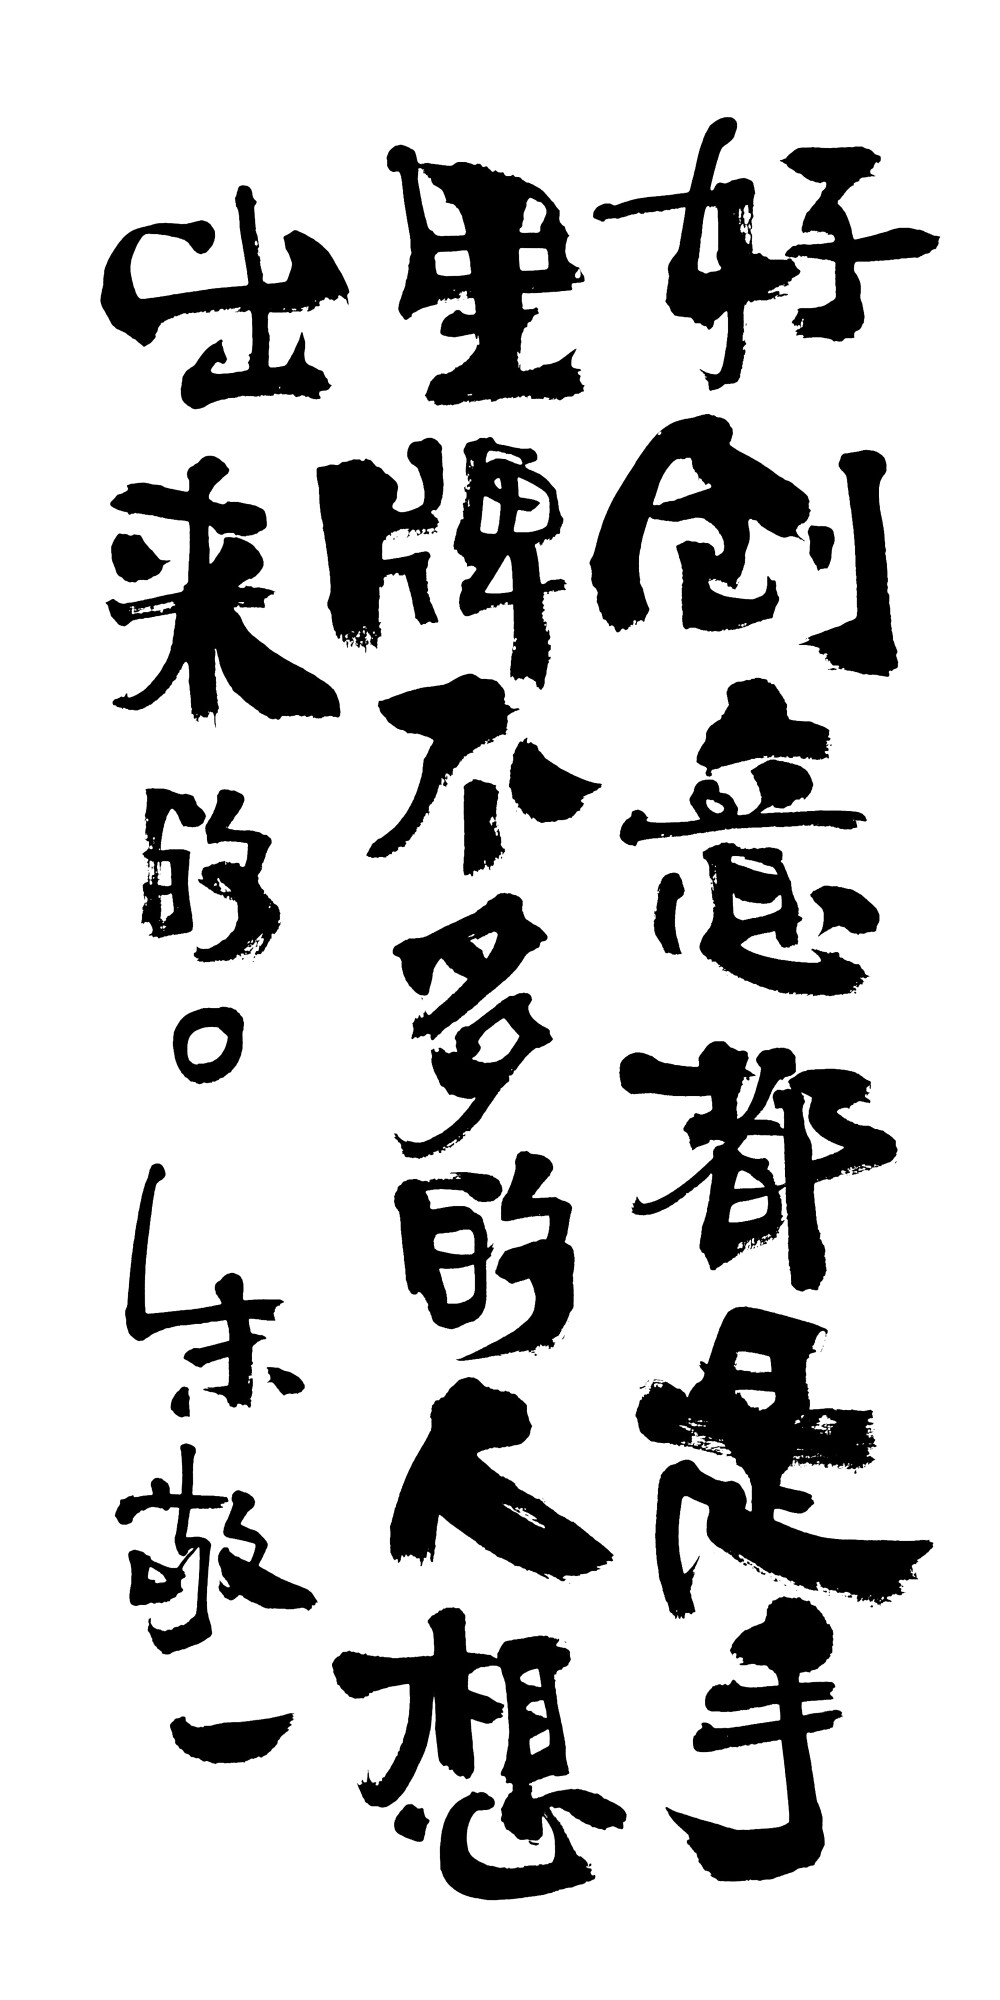 好创意都是手
里牌不多的人想
出来的。朱敬一